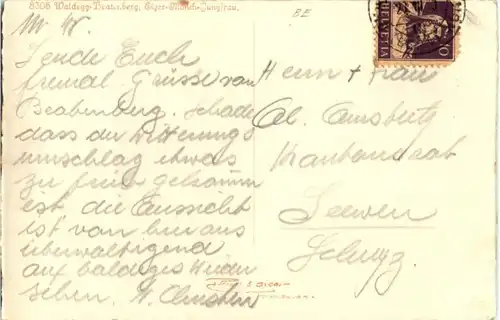 8308 Waldegg-Beatenberg, Eiger-Mönch-Jungfrau.
HELVETIA
M. W.
Sende Euch
freundl. Grüsse von
Beatenberg. Schade
dass der Witterungs
umschlag etwas
zu früh gekommen
ist die Aussicht
ist von hier aus
überwältigend
auf baldiges Wieder
sehen.
Herrn + Frau
Al.
Seewen
Schwyz.